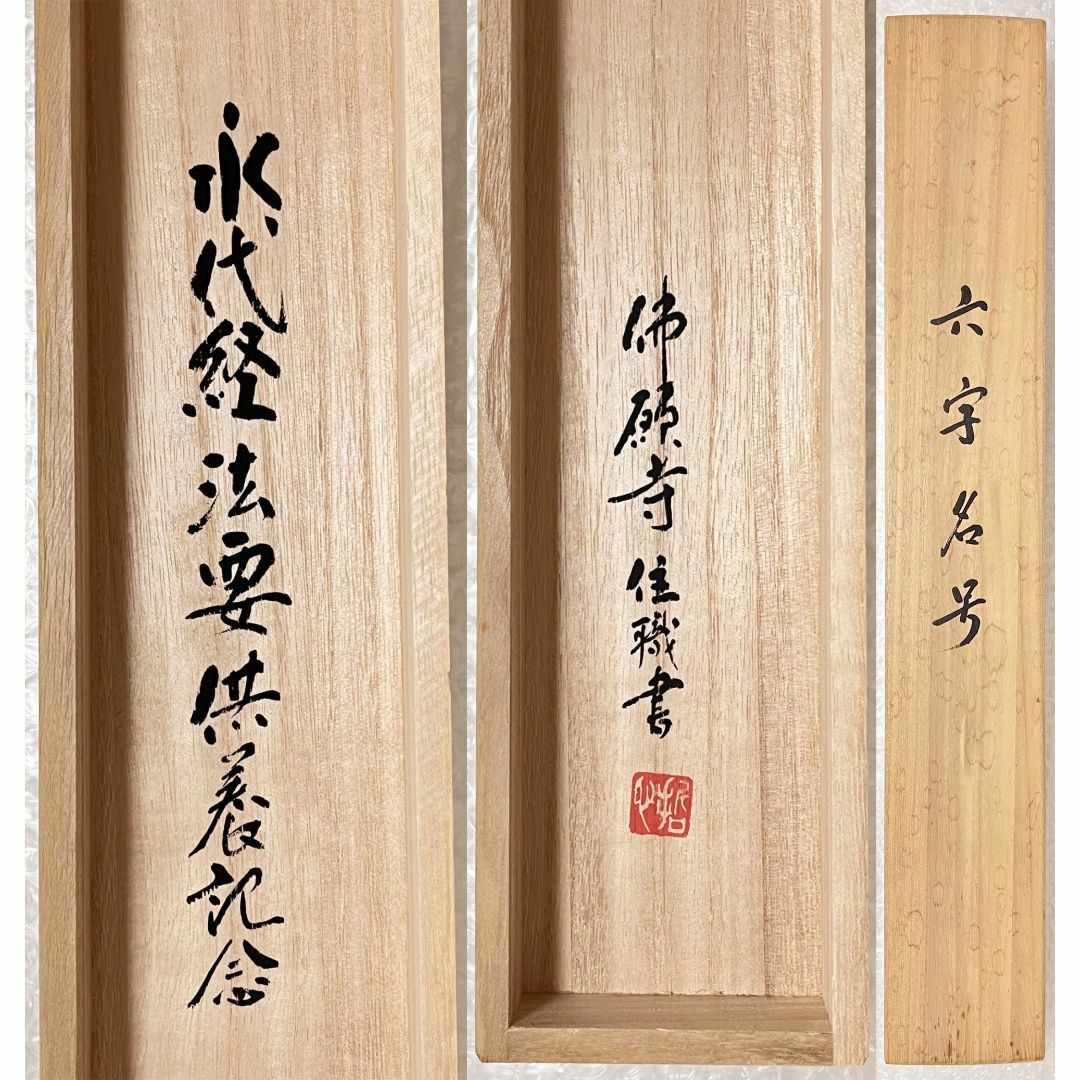 永代経法要供養記念
佛願寺住職書
六字名号